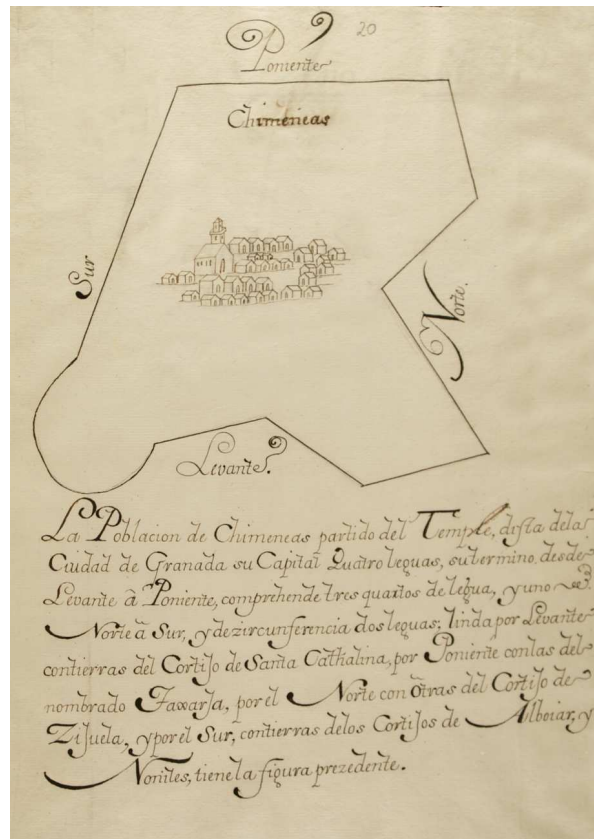 20
Poniente
Chimeneas
Sur
Norte.
Levante.
La Poblacion de Chimeneas partido del Temple, dista dela
Ciudad de Granada su Capital Quatro leguas, su termino, desde
Levante â Poniente, comprehende tres quartos de legua, y uno de
Norte â Sur, y de zircunferencia dos leguas; linda por Levante
contierras del Cortijo de Santa Cathalina, por Poniente con las del
nombrado Faxarja, por el Norte con ôtras del Cortijo de
Zijuela, y por el Sur, contierras delos Cortijos de Alboiar, y
Noniles, tiene la figura prezedente.